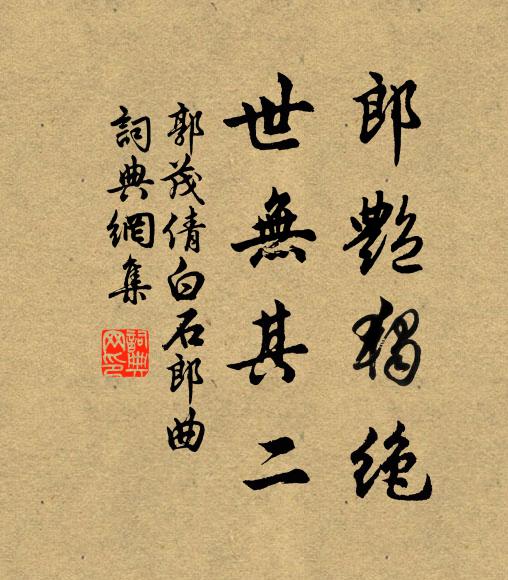 郎艷獨絕
世無其二
郭茂倩白石郎曲
詞典網集
詞典网印